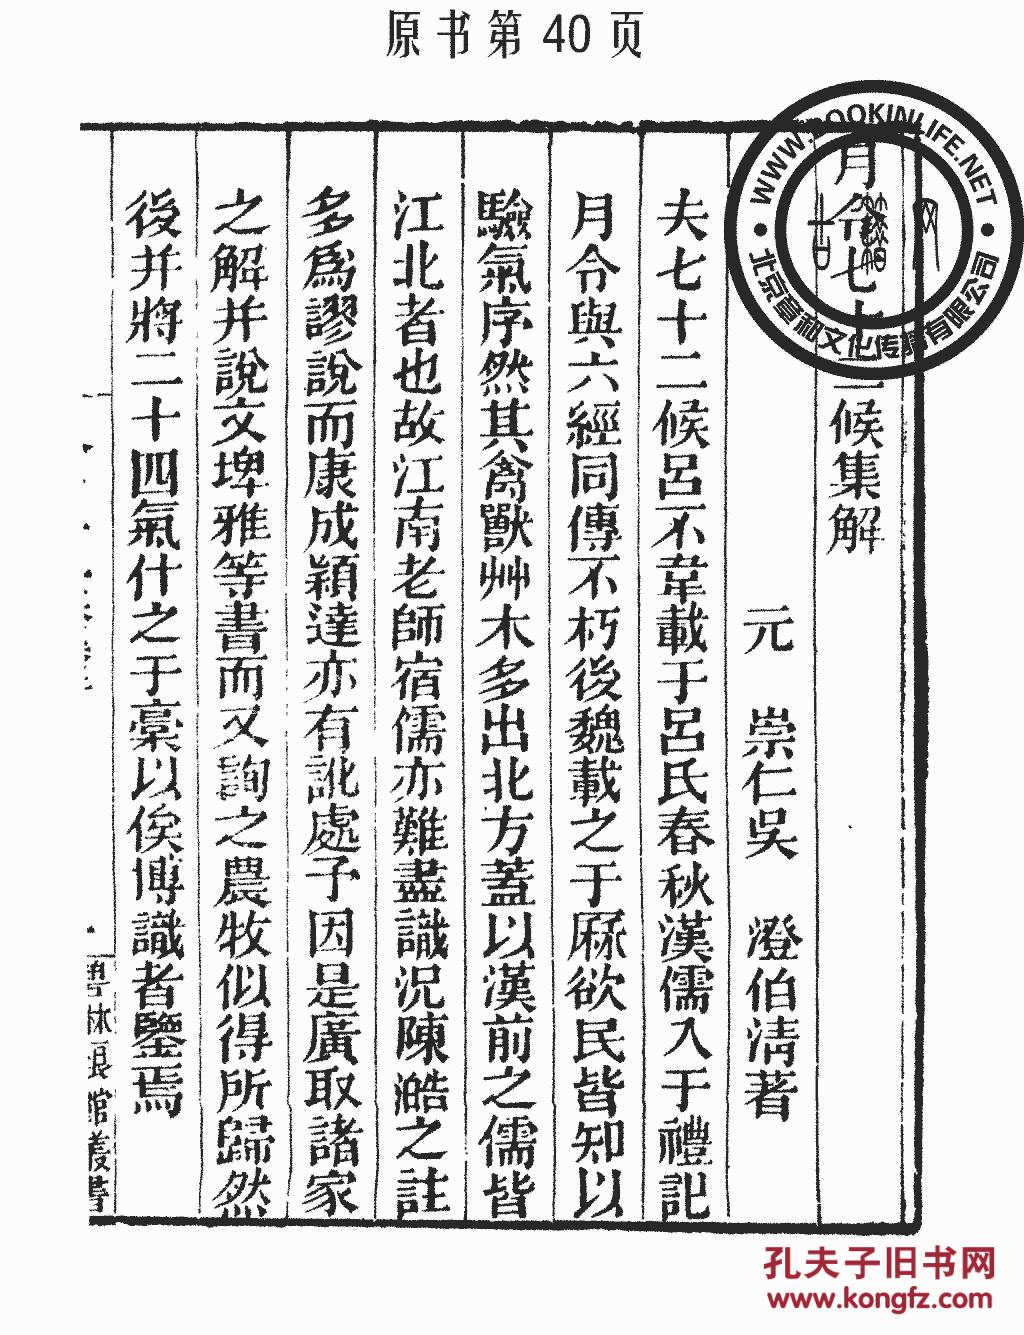 原书第 40 页
月令七十二候集解
元　崇仁吳　澄伯清著
夫七十二候呂不韋載于呂氏春秋漢儒入于禮記
月令與六經同傳不朽後魏載之于厤欲民皆知以
驗氣序然其禽獸艸木多出北方蓋以漢前之儒皆
江北者也故江南老師宿儒亦難盡識況陳澔之註
多爲謬說而康成穎達亦有訛處予因是廣取諸家
之解并說文埤雅等書而又詢之農牧似得所歸然
後并將二十四氣什之于稾以俟博識者鑒焉
碧林琅館叢書
WWW.BOOKINLIFE.NET
北京章和文化传播有限公司
孔夫子旧书网
www.kongfz.com